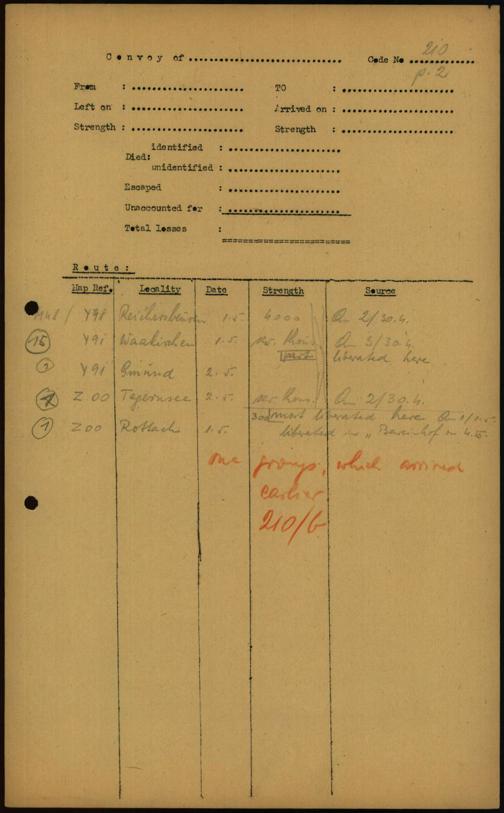 Convoy of .............................. Code No 210
p. 2
From : ...................... TO : ......................
Left on : ...................... Arrived on : ......................
Strength : ...................... Strength : ......................
identified : ......................
Died:
unidentified : ......................
Escaped : ......................
Unaccounted for : ......................
Total losses :
Route:
Map Ref. Locality Date Strength Source
/ Y98 Reichersbeuern 1.5. 4000 An 2/30.4.
15 Y91 Waakirchen 1.5. sev. thous. An 3/30.4
most liberated here
2 Y91 Gmünd 2.5.
Z 00 Tegernsee 2.5. sev. thous. An 2/30.4.
300 most liberated here An 1/1.5.
1 Z00 Rottach 1.5. liberated in
one group, which arrived
earlier
210/6